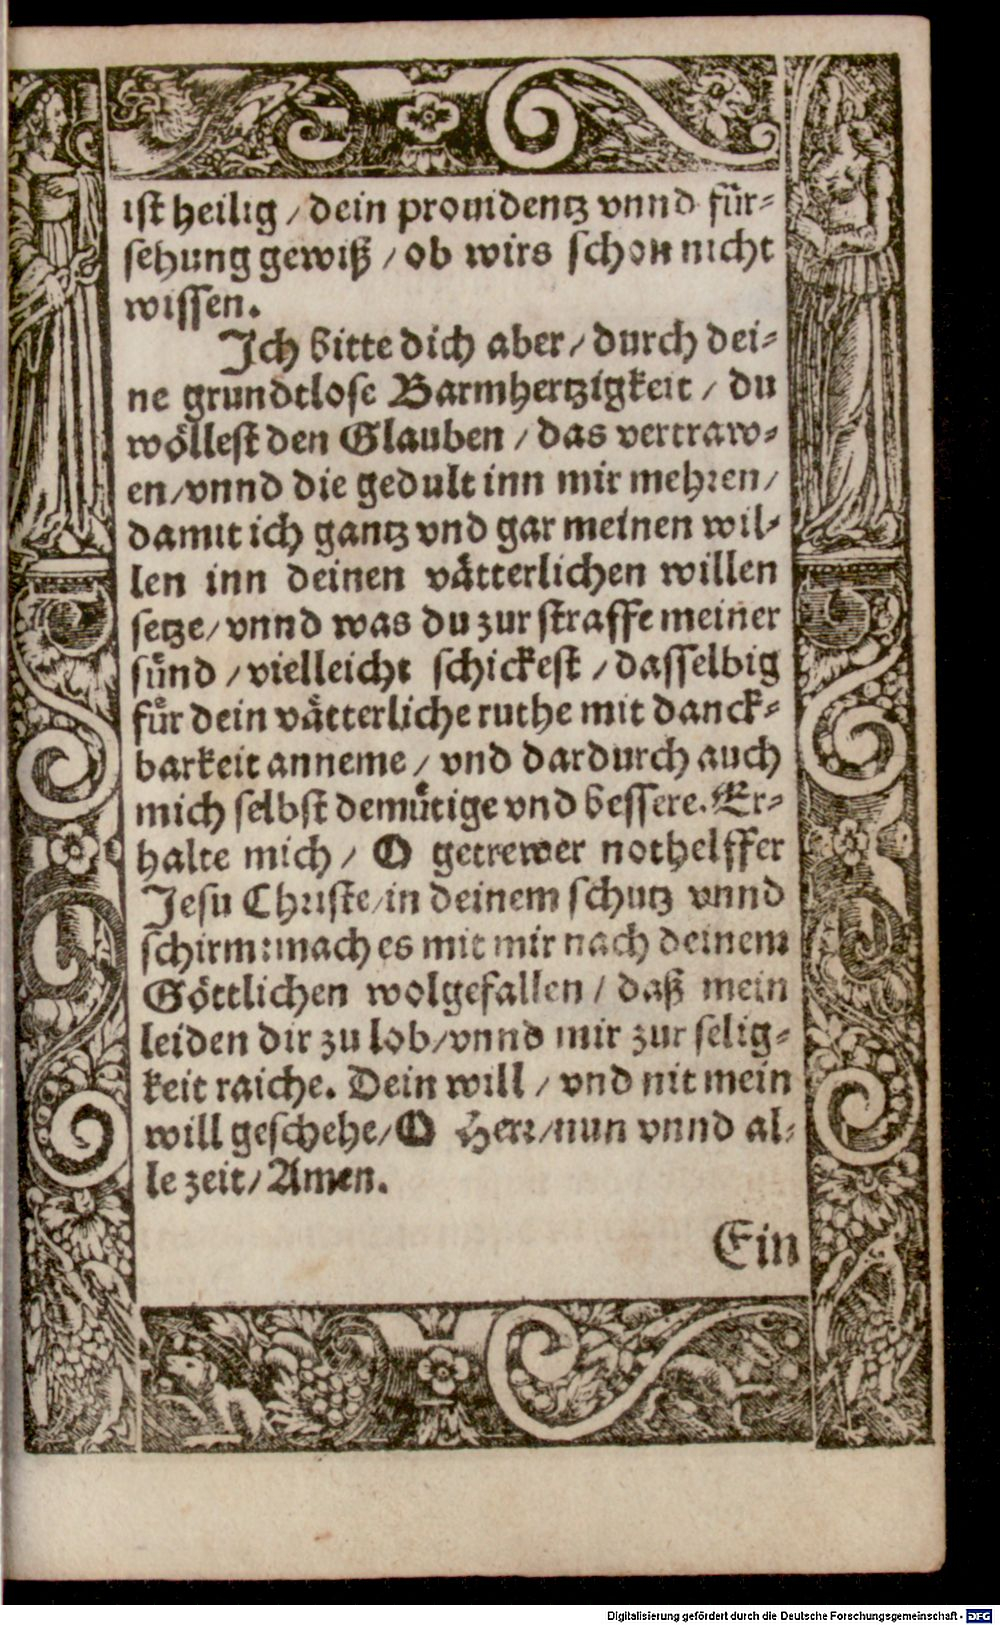 ist heilig / dein prouidentz vnnd für-
sehung gewiß / ob wirs schon nicht
wissen.
Ich bitte dich aber / durch dei-
ne grundtlose Barmhertzigkeit / du
wöllest den Glauben / das vertraw-
en / vnnd die gedult inn mir mehren /
damit ich gantz vnd gar meinen wil-
len inn deinen vätterlichen willen
setze / vnnd was du zur straffe meiner
sünd / vielleicht schickest / dasselbig
für dein vätterliche ruthe mit danck-
barkeit anneme / vnd dardurch auch
mich selbst demütige vnd bessere. Er-
halte mich / O getrewer nothelffer
Jesu Christe / in deinem schutz vnnd
schirm: mach es mit mir nach deinem
Göttlichen wolgefallen / daß mein
leiden dir zu lob / vnnd mir zur selig-
keit raiche. Dein will / vnd nit mein
will geschehe / O Herr / nun vnnd al-
le zeit / Amen.
Ein
Digitalisierung gefördert durch die Deutsche Forschungsgemeinschaft - DFG